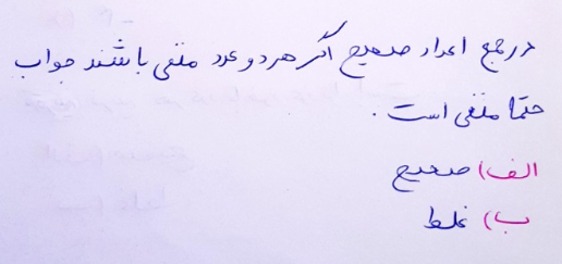 در جمع اعداد صحیح اگر هر دو عدد منفی باشند جواب
حتما منفی است.
الف) صحیح
ب) غلط